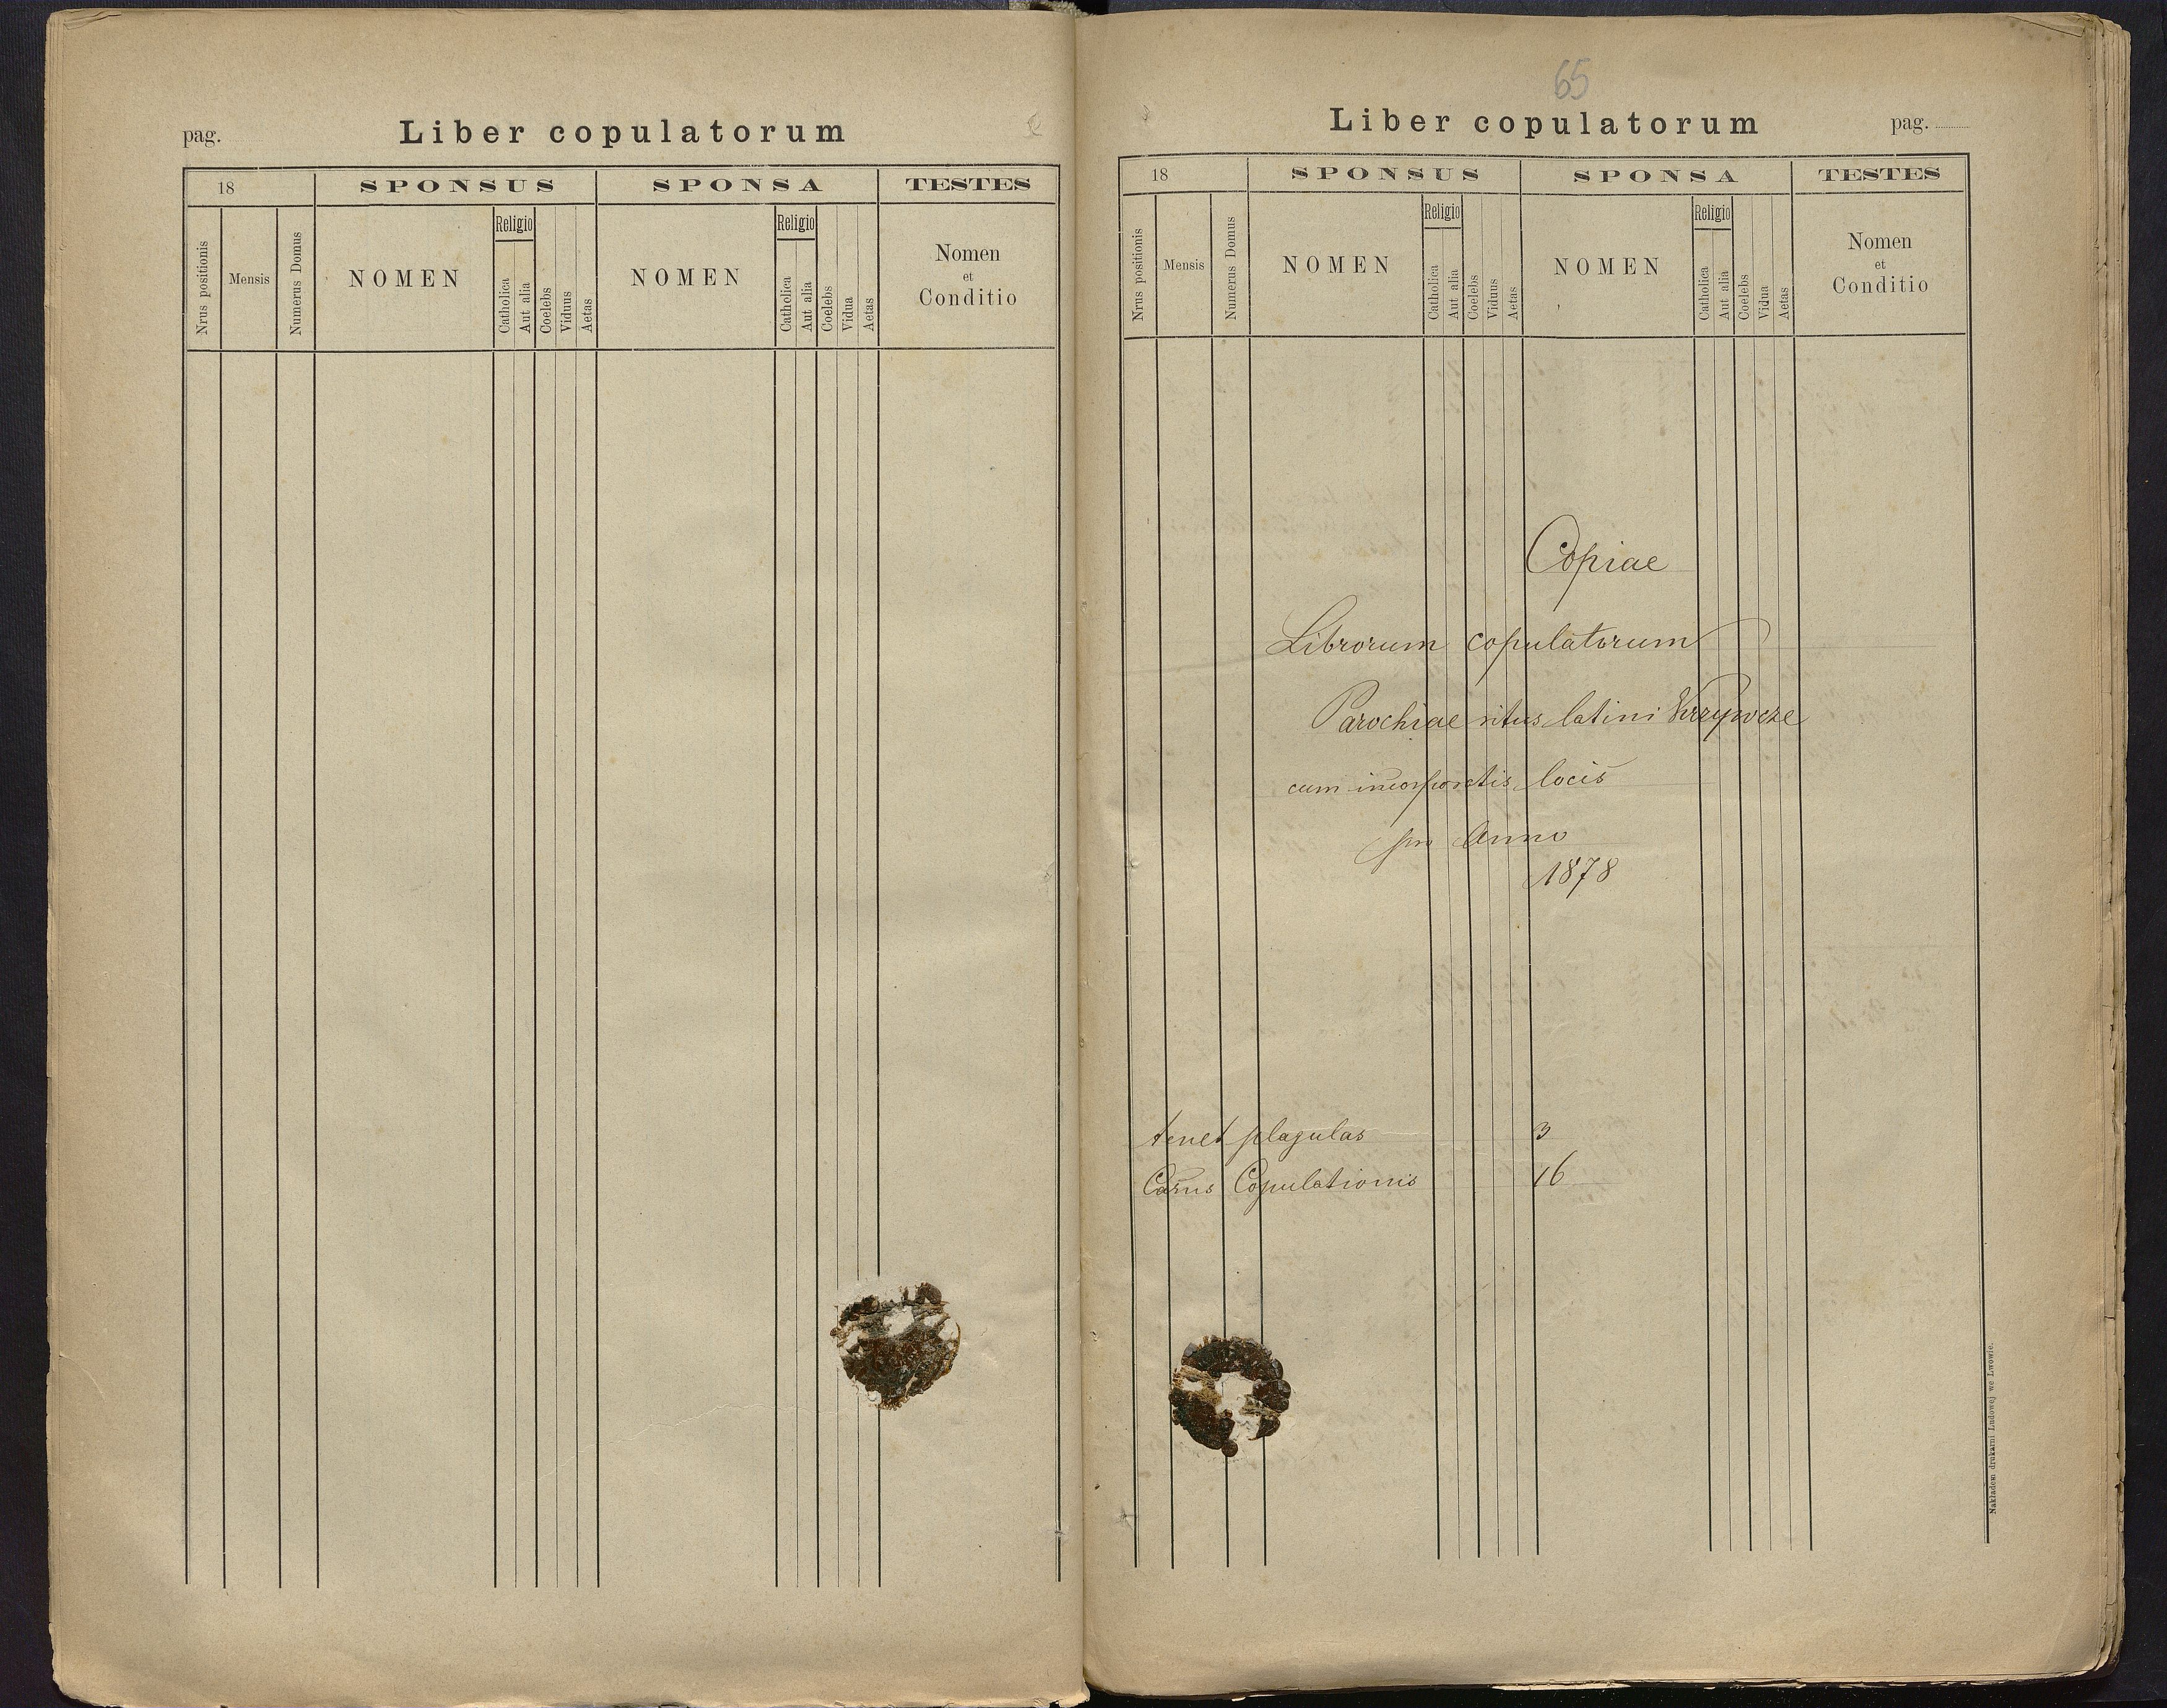 pag.
Liber copulatorum
18
SPONSUS
SPONSA
TESTES
Nrus positionis
Mensis
Numerus Domus
NOMEN
Religio
Catholica
Aut alia
Coelebs
Viduus
Aetas
NOMEN
Religio
Catholica
Aut alia
Coelebs
Vidua
Aetas
Nomen
et
Conditio
65
Liber copulatorum
pag.
18
SPONSUS
SPONSA
TESTES
Nrus positionis
Mensis
Numerus Domus
NOMEN
Religio
Catholica
Aut alia
Coelebs
Viduus
Aetas
NOMEN
Religio
Catholica
Aut alia
Coelebs
Vidua
Aetas
Nomen
et
Conditio
Copiae
Librorum copulatorum
Parochiae ritus latini Krzywcze
cum incorporatis locis
pro Anno
1878
tenet plagulas 3
Casus Copulationis 16
Nakładem drukarni Ludowej we Lwowie.